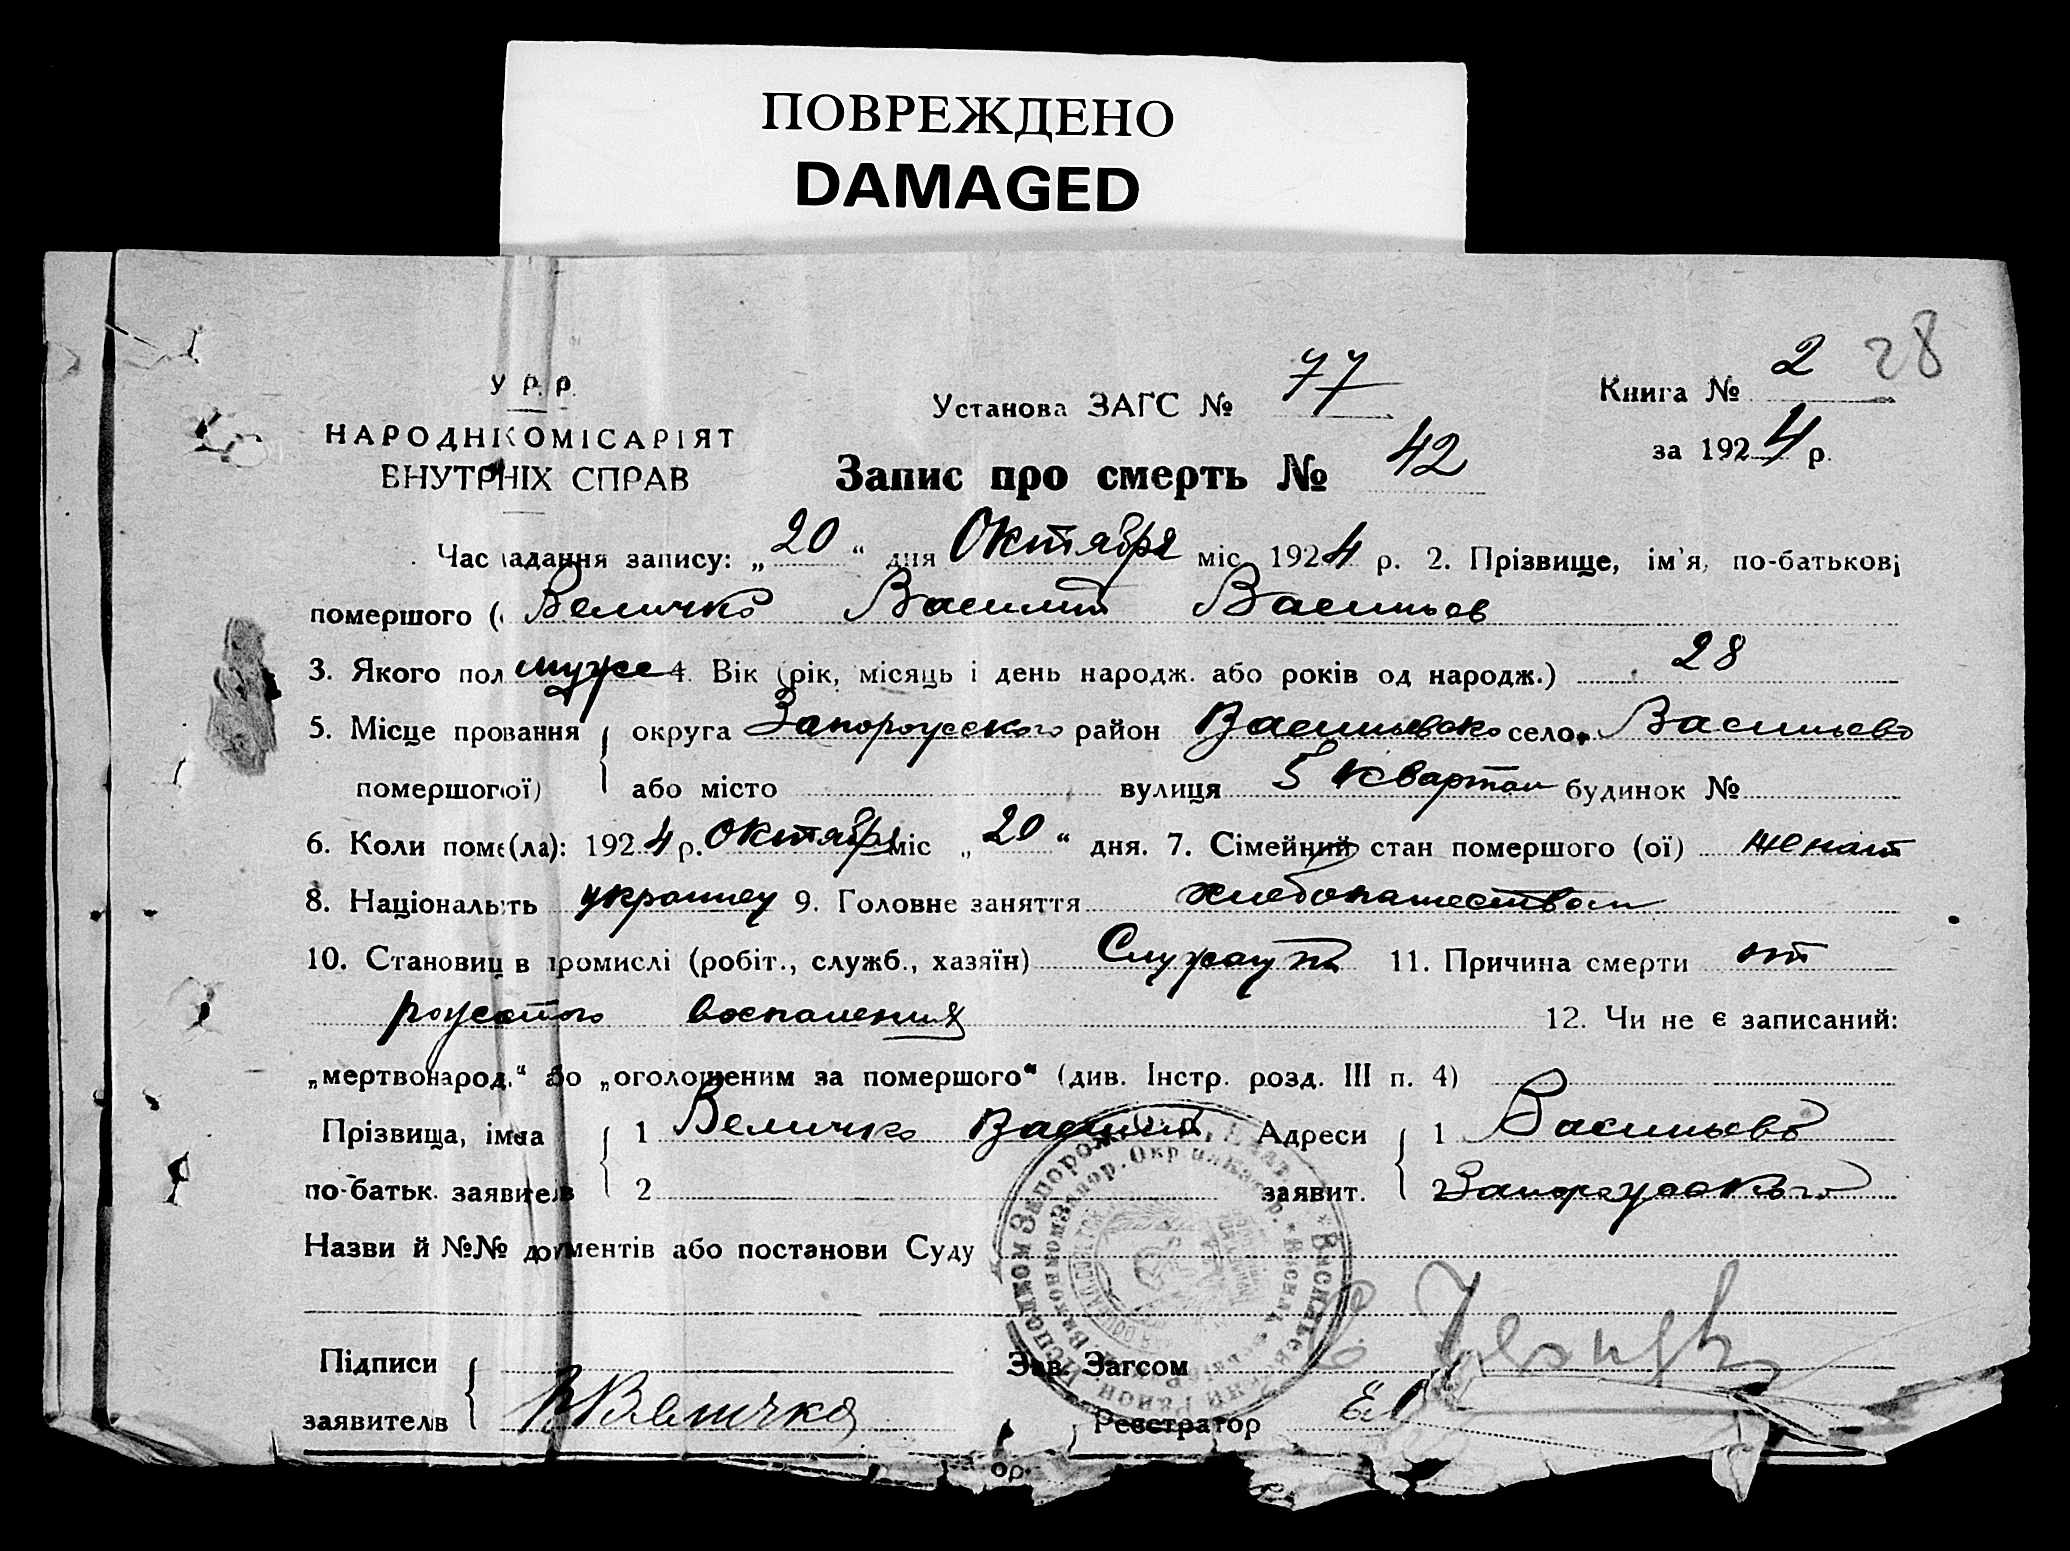 ПОВРЕЖДЕНО
DAMAGED
28
У Р. Р.
НАРОДНКОМІСАРІЯТ
ВНУТРНІХ СПРАВ
Установа ЗАГС № 77
Книга № 2
за 1924 р.
Запис про смерть № 42
Час адання запису: „20“ дня Октября міс. 1924 р. 2. Прізвище, ім'я, по-батькові
помершого ( Величко Василий Васильев
3. Якого пол муже 4. Вік (рік, місяць і день народж. або років од народж.) 28
5. Місце провання округа Запорожского район Васильевско село Васильево
помершог(ої) або місто вулиця 5 квартал будинок №
6. Коли поме(ла): 1924 р. Октября міс „20“ дня. 7. Сімейний стан помершого (ої) женат
8. Національть украинец 9. Головне заняття хлебопашеством
10. Становищ в промислі (робіт., служб., хазяїн) 11. Причина смерти от
рожистого воспаления 12. Чи не є записаний:
„мертвонарод.“ або „оголошеним за помершого“ (див. Інстр. розд. III п. 4)
Прізвища, імена 1 Величко Василий Адреси 1 Васильево
по-батьк. заявителв 2 заявит. 2 Запорожского
Назви й №№ документів або постанови Суду
Підписи Зав. Загсом
заявителв В Величко Реєстратор